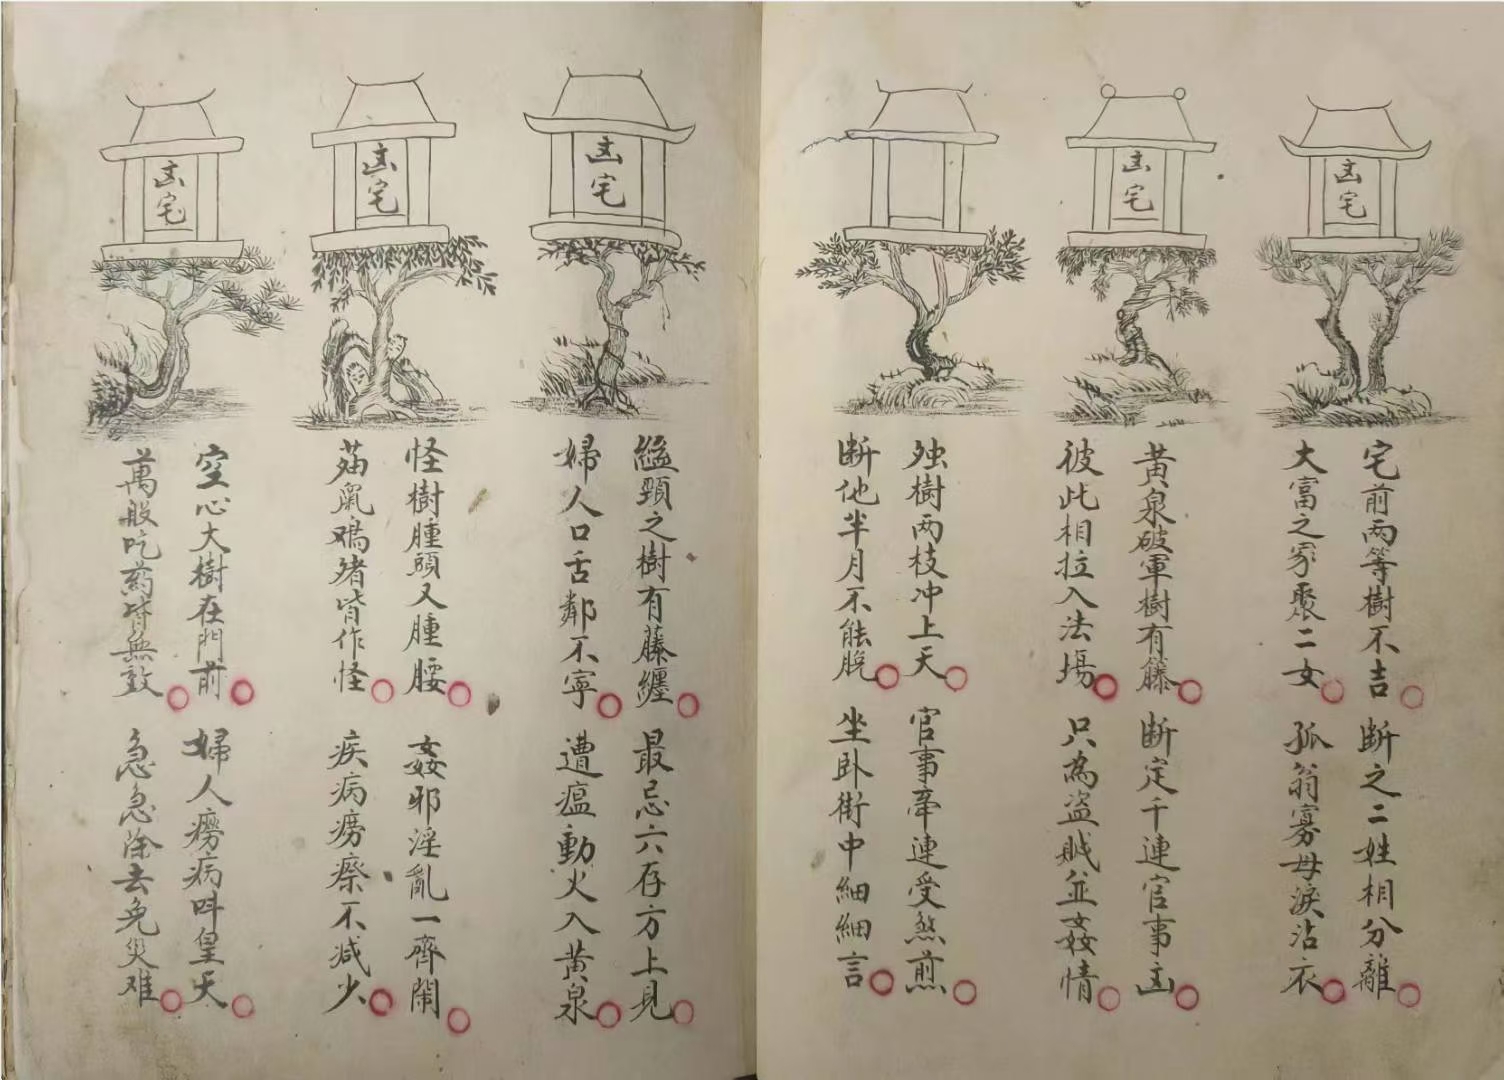 凶宅
宅前两等樹不吉
断之二姓相分離
大富之家聚二女
孤翁寡母淚沾衣
凶宅
黄泉破軍樹有籐
断定千連官事凶
彼此相拉入法場
只為盗贼並姦情
独樹两枝冲上天
官事牵連受煞煎
断他半月不能脱
坐卧街中細細言
凶宅
頸之樹有藤纏
最忌六存方上見
婦人口舌鄰不寧
遭瘟動火入黄泉
凶宅
怪樹腫頭又腫腰
姦邪淫亂一齊閙
鷄猪皆作怪
疾病痨瘵不减少
凶宅
空心大樹在門前
婦人癆病叫皇天
萬般吃药皆無效
急急除去免災难